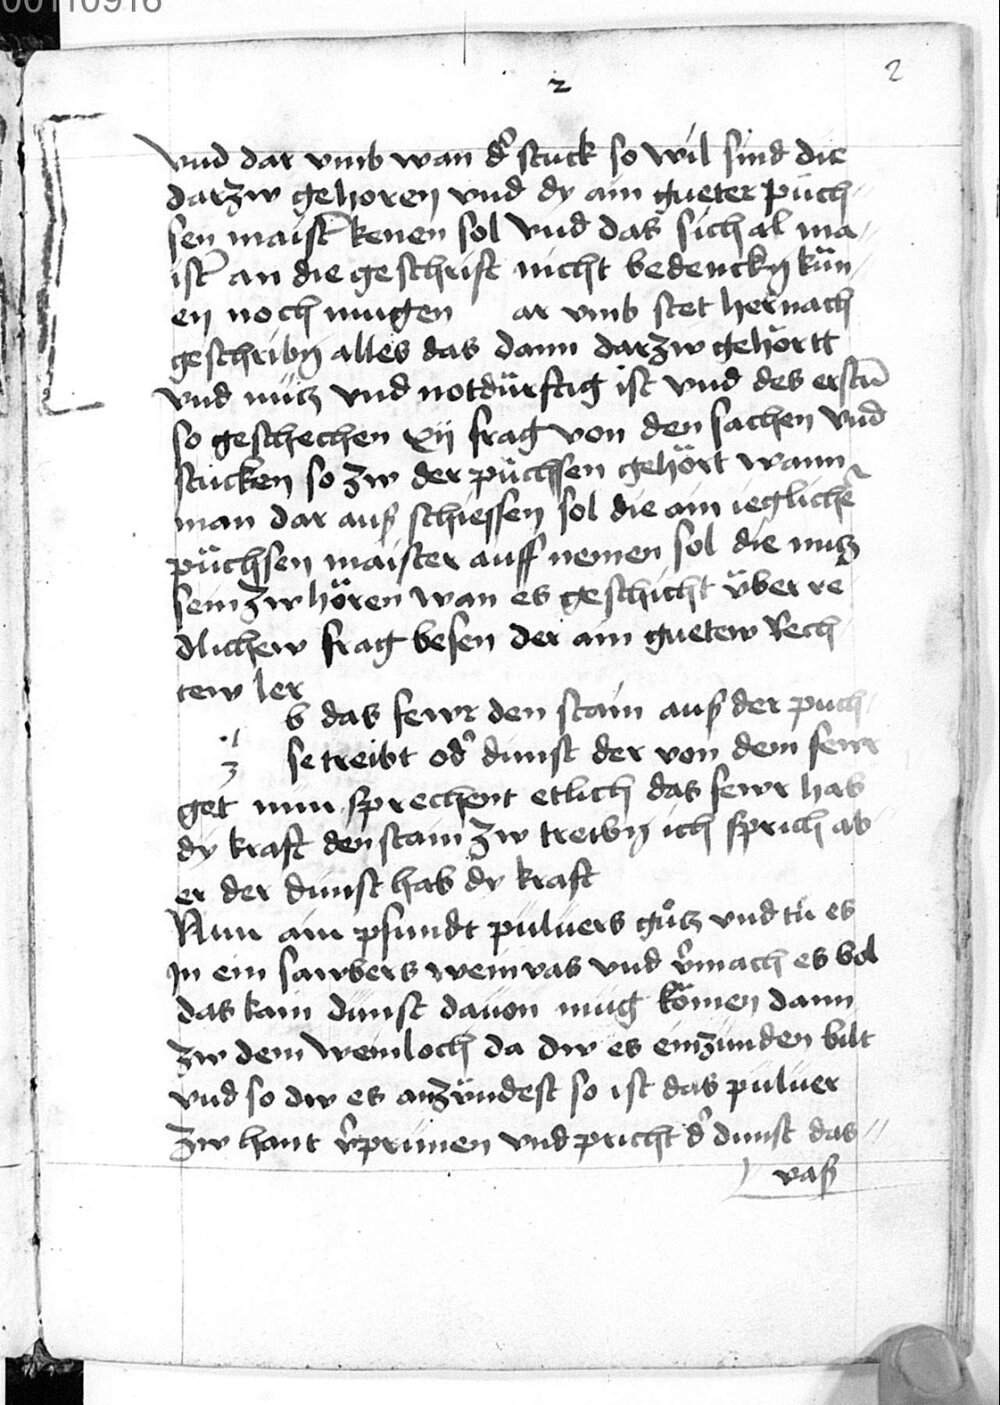 00110916
2
2
vnd dar vmb wan d' stuck so wil sind die
darzw gehoren vnd dy ain gueter püch
sen maist' kenen sol vnd das sich al ma
ist' an die geschrift nicht bedenckn kün
en noch mugen ar vmb stet hernach
geschribn alles das dann darzw gehörtt
vnd nütz vnd notdürftig ist vnd des erstn̄
so geschechen xij frag von den sachen vnd
stucken so zw der püchsen gehört wann
man dar auß schiessen sol die ain ieglichē
püchsen maister auff nemen sol die nutz
sein zw hören wan es geschicht über re
dlichew frag besen der ain guetew Rech
tew ler
b das fewr den stain auß der puch
1
3
se treibt od' dunst der von dem fewr
get nun sprechent etlich das fewr hab
dy kraft den stain zw treibn ich sprich ab
er der dunst hab dy kraft
Nim ain pfundt puluers gůtz vnd tü es
In ein sawbers weinvas vnd v'mach es bol
das kain dunst dauon mug kömen dann
zw dem weinloch da dw es einzunden bilt
vnd so dw es anzündest so ist das puluer
zw hant v'prünen vnd pricht d' dunst das
vaß